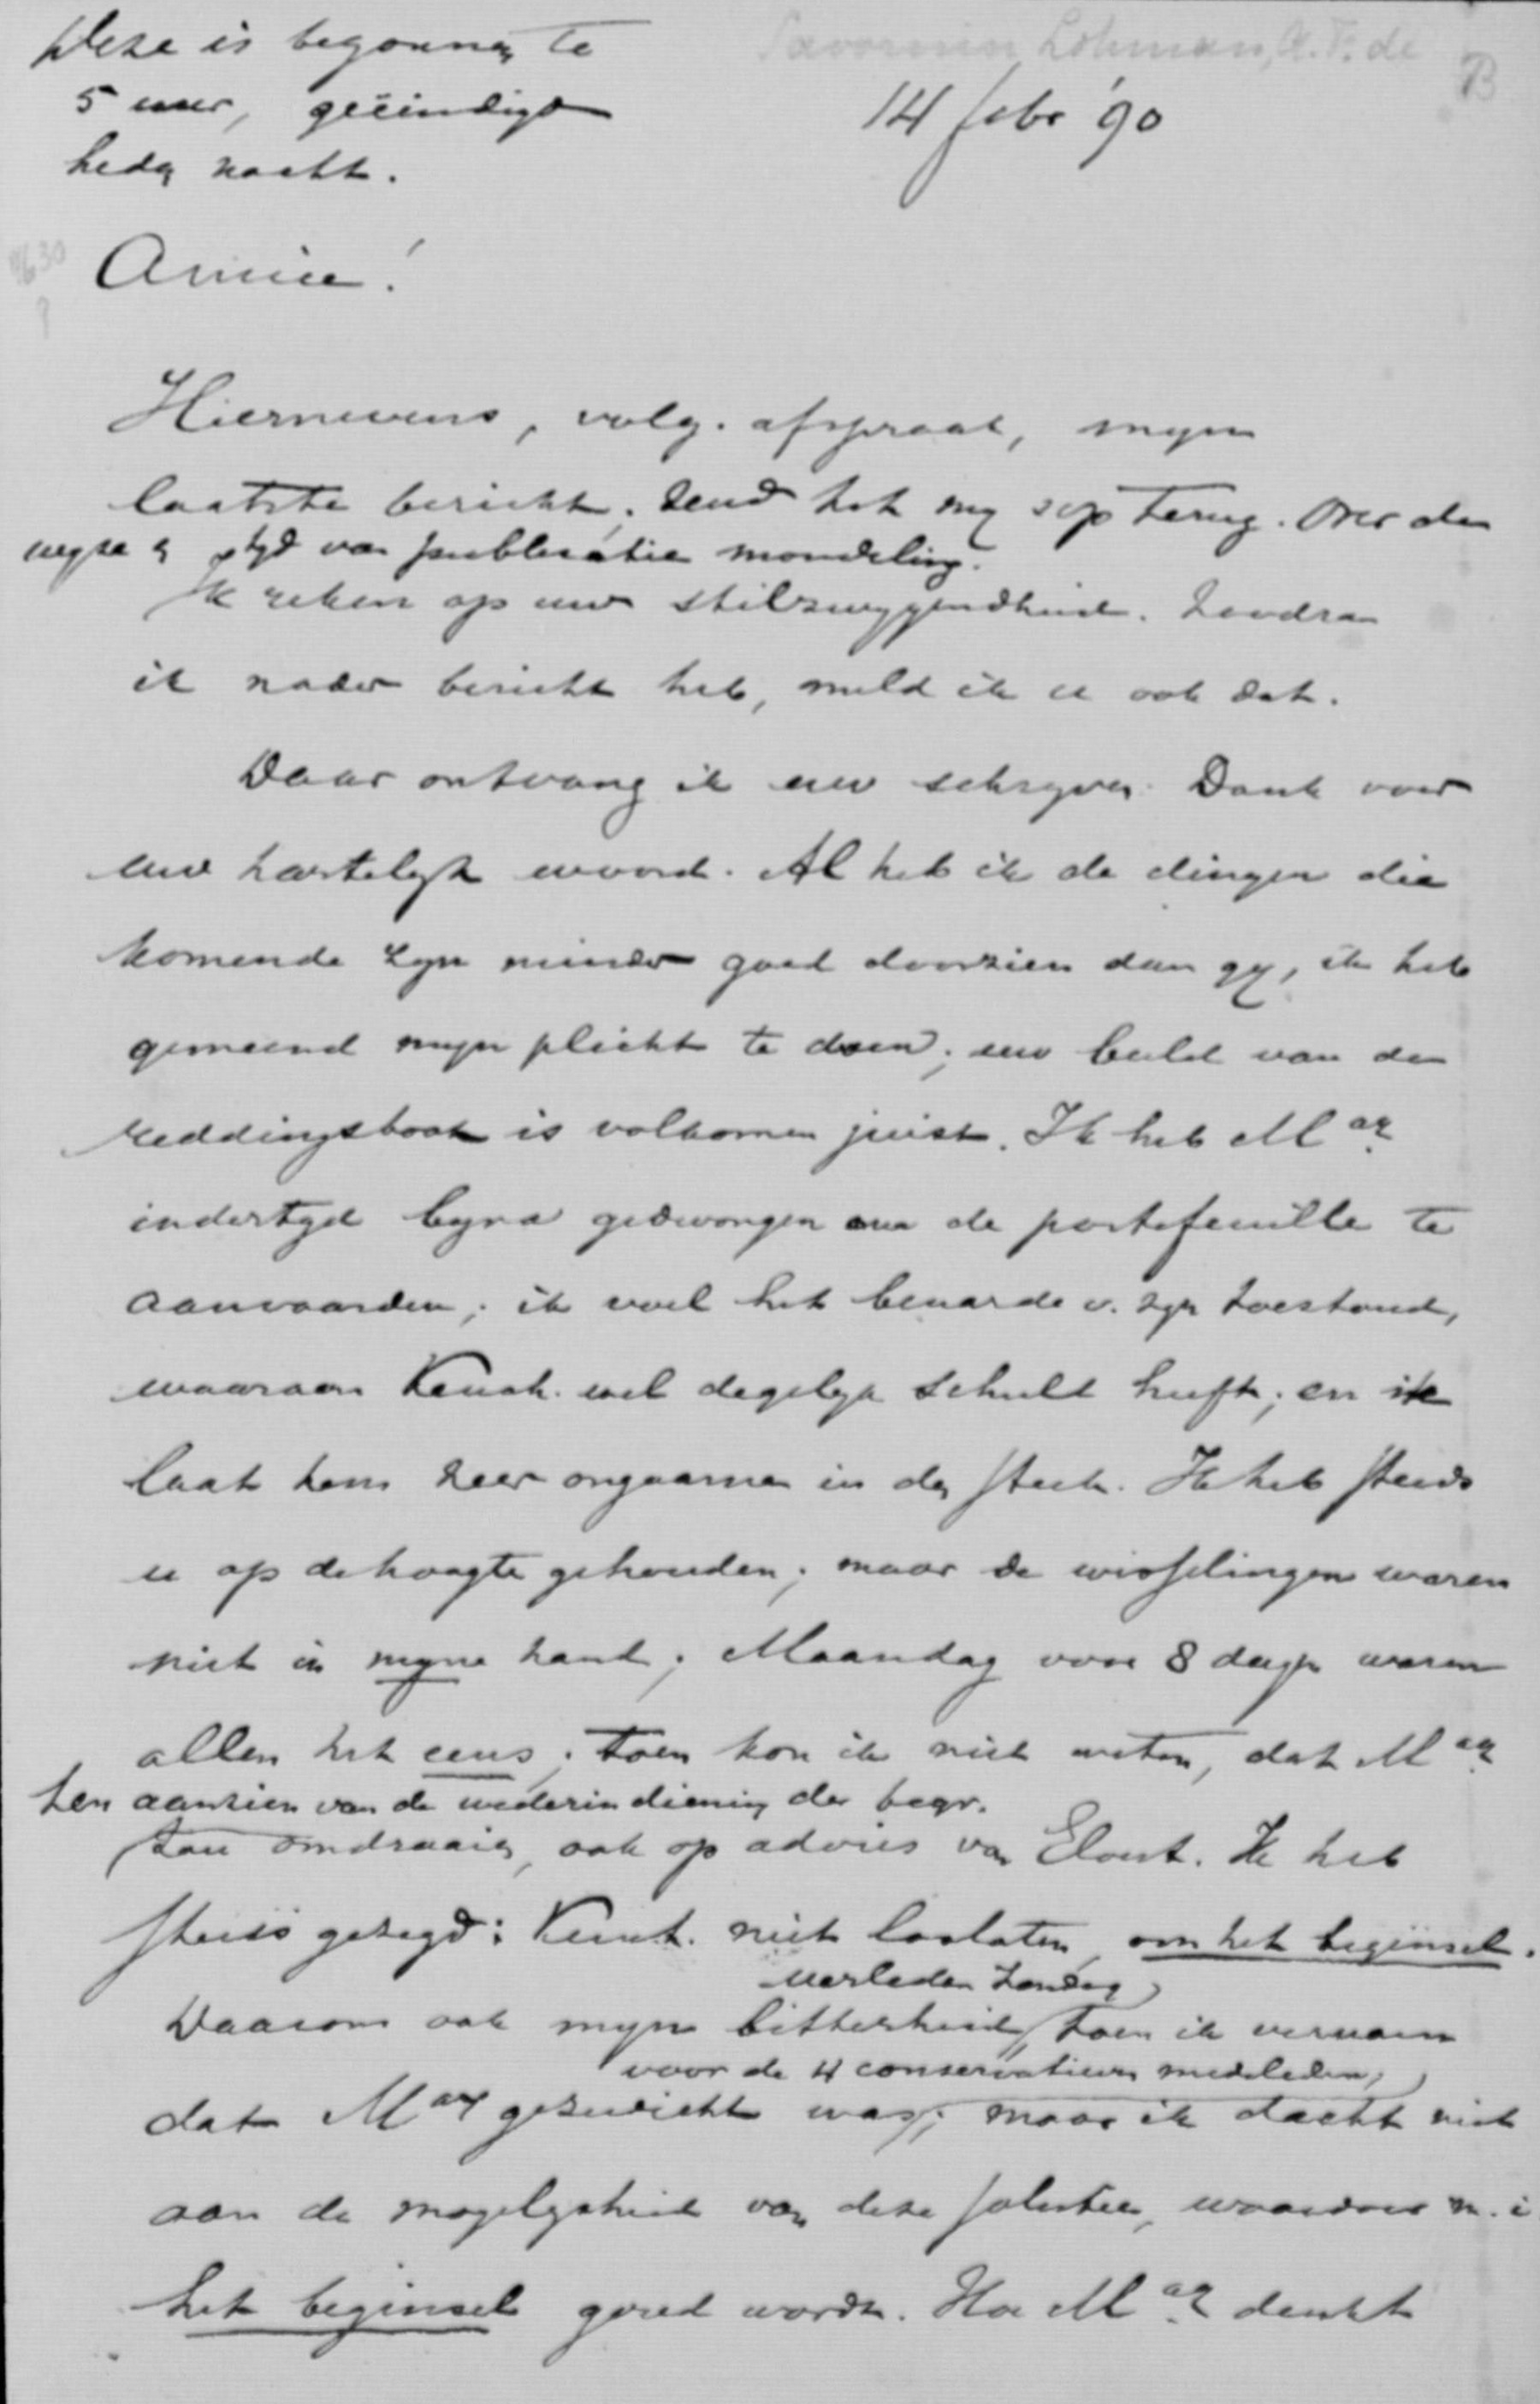 Deze is begonnen te
5 uur, geëindigd
heden nacht.
Savornin Lohman, A.F. de
B
14 febr '90
Amice!
Hiernevens, volg. afspraak, mijn
laatste bericht. Zend het mij s.v.p. terug. Over de
wijze en tijd van publicatie mondeling.
Ik reken op uw stilzwijgendheid. Zoodra
ik nader bericht heb, meld ik u ook dat.
Daar ontvang ik uw schrijven. Dank voor
uw hartelijk woord. Al heb ik de dingen die
komende zijn minder goed doorzien dan gij, ik heb
gemeend mijn plicht te doen; uw beeld van de
reddingsboot is volkomen juist. Ik heb Mac
indertijd bijna gedwongen om de portefeuille te
aanvaarden; ik voel het benarde v. zijn toestand,
waaraan Keuch. wel degelijk schuld heeft; en ik
laat hem zeer ongaarne in den steek. Ik heb steeds
u op de hoogte gehouden; maar de wisselingen waren
niet in mijne hand; Maandag voor 8 dagen waren
allen het eens; toen kon ik niet weten, dat Mac
ten aanzien van de wederindiening der begr.
zou omdraaien, ook op advies van Elout. Ik heb
steeds gezegd: Keuch. niet loslaten, om het beginsel.
verleden Zondag
Daarom ook mijn bitterheid, toen ik vernam
voor de 4 conservatieve medeleden,
dat Mac gezwicht was; maar ik dacht niet
aan de mogelijkheid van deze solutie, waardoor m. i
het beginsel gered wordt. Hoe Mac denkt